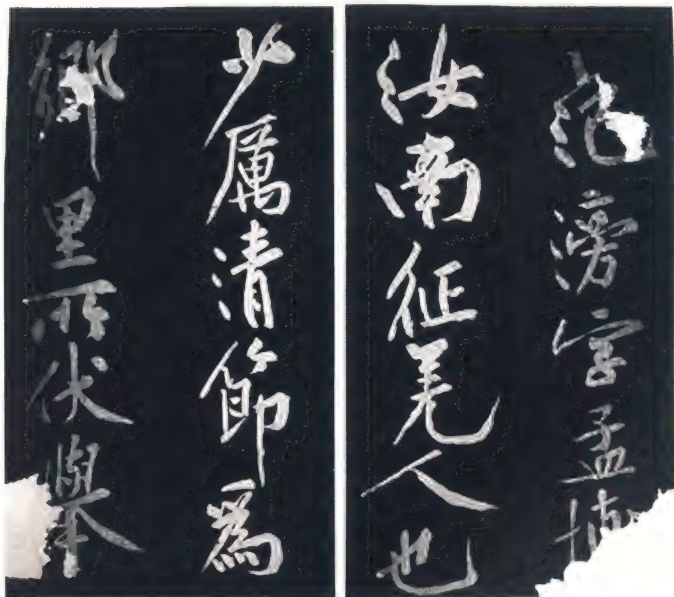 范滂字孟博
汝南征羌人也
少厲清節爲
鄉里所伏舉